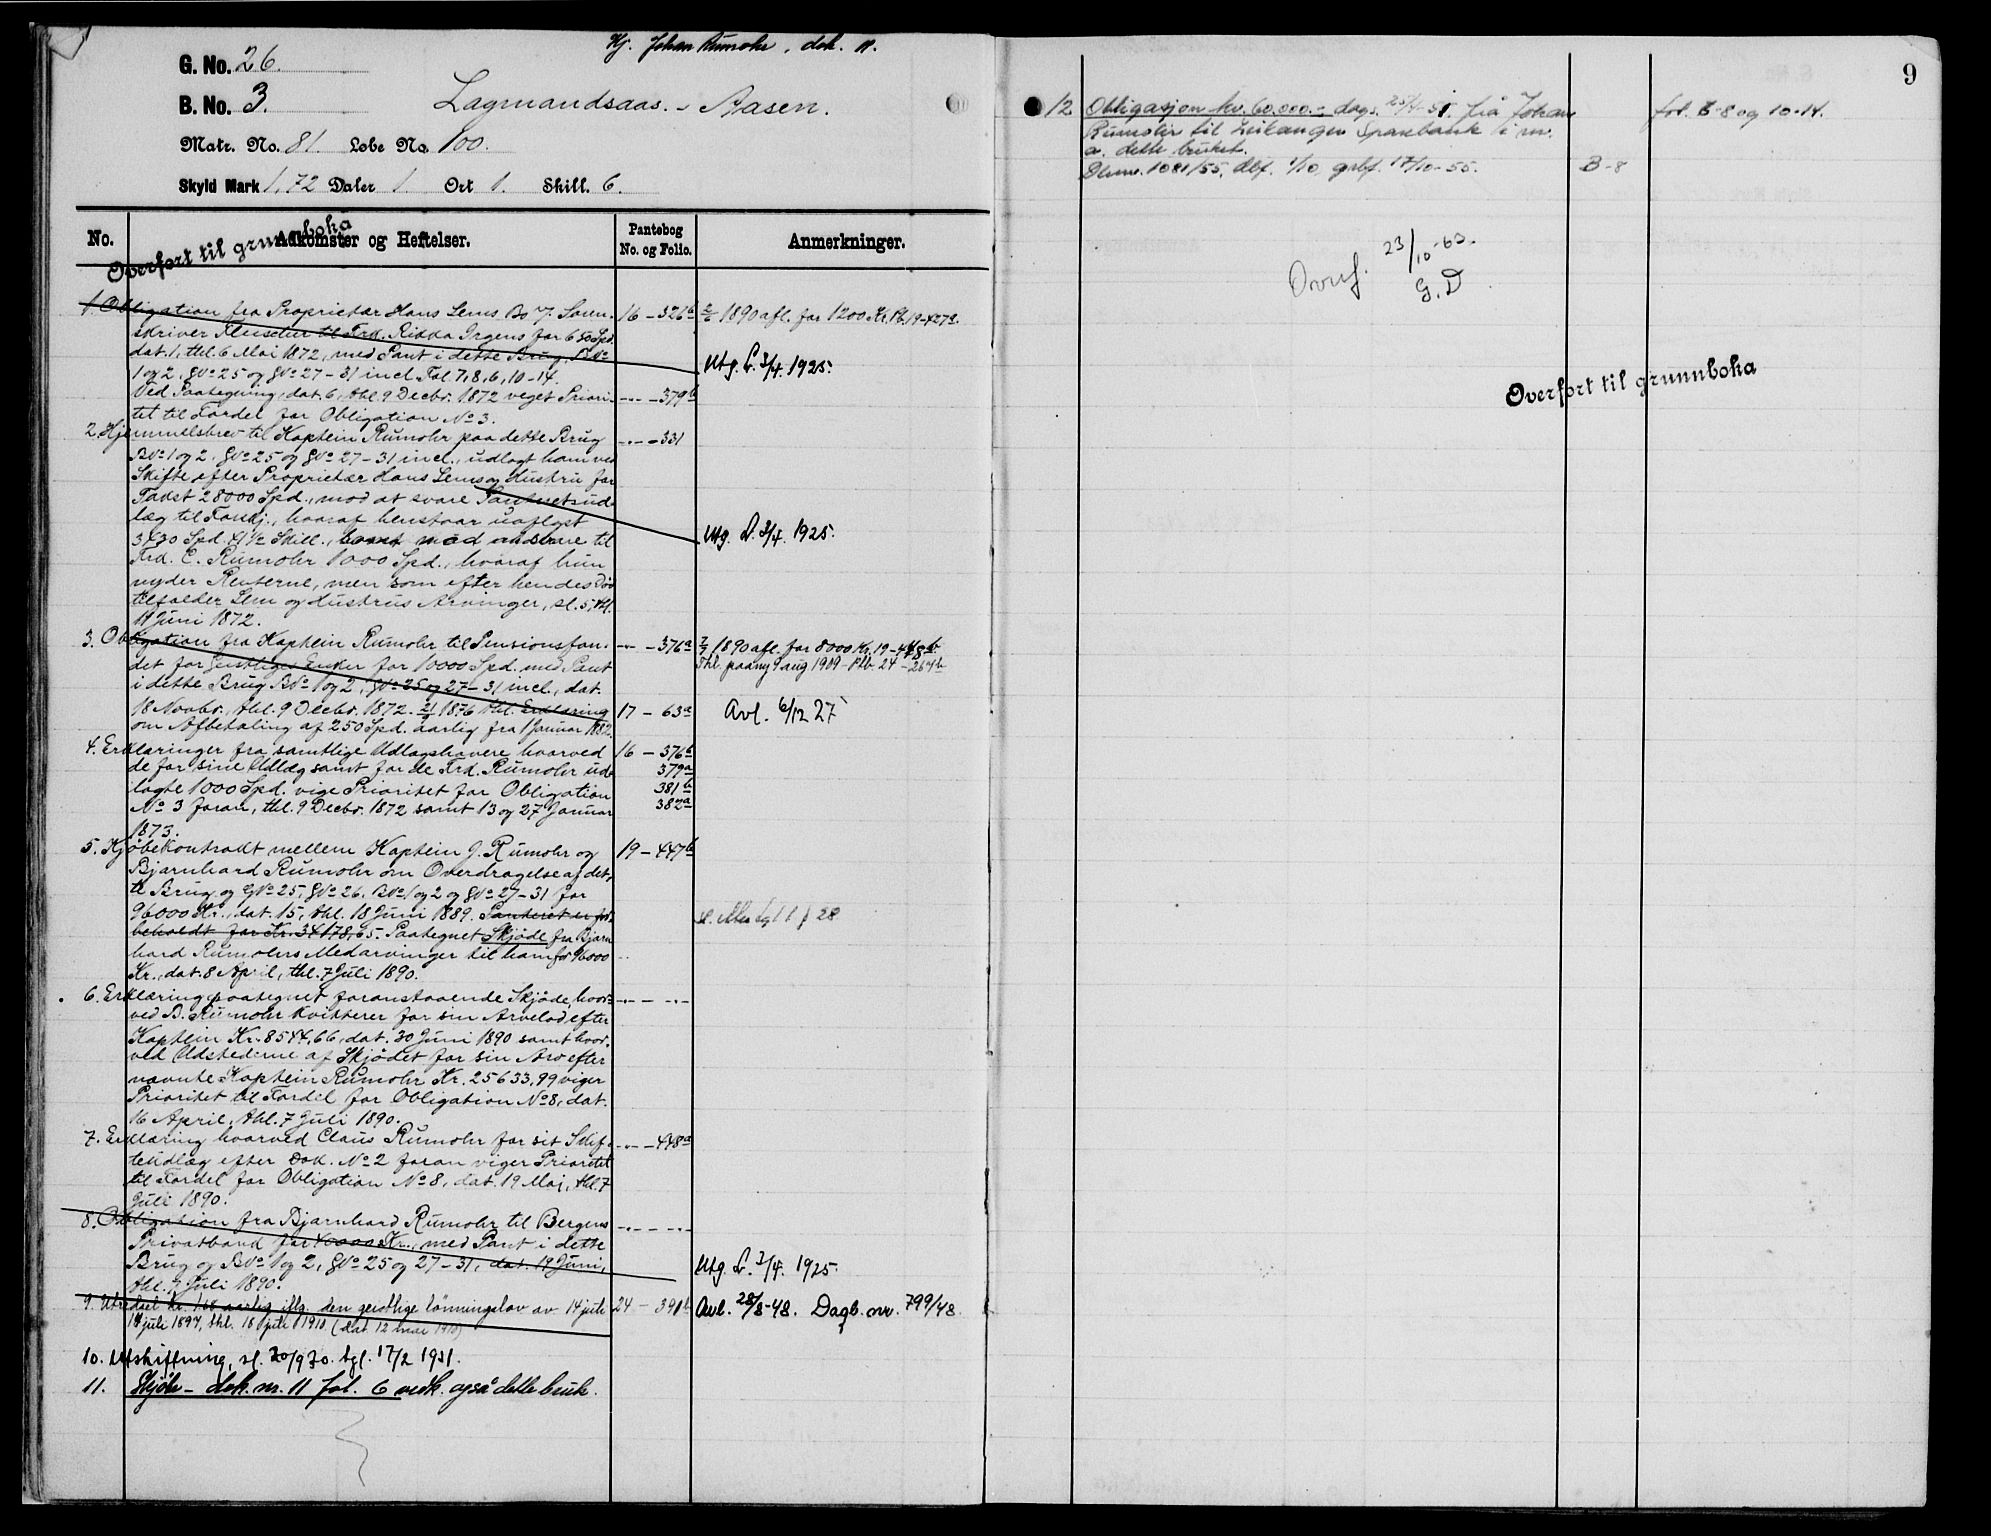 Hj. Johan Rumohr, dok. 11.
G. No. 26.
B. No. 3.
Lagmandsaas. - Aasen.
Matr. No. 81. Løbe No. 100.
Skyld Mark 1,72 Daler 1. Ort 1. Skill. 6.
No. Adkomster og Heftelser. Pantebog No. og Folio. Anmerkninger.
Overført til grunnboka
1. Obligation fra Proprietær Hans Lems Bo v. Soren- 16 - 326b 2/6 1890 afl. for 1200 Kr. Pb. 19-427a.
skriver til Frk. Rikka Irgens for 650 Spd.
dat. 1, thl. 6 Mai 1872, med Pant i dette Brug, BNo
1 og 2, gNo 25 og gNo 27-31 incl. Fol. 7, 8, 6, 10-14. Utg. L. 3/4. 1925.
Ved Paategning, dat. 6, thl. 9 Decbr. 1872 veget Priori- -"- - 379b
tet til Fordel for Obligation No 3.
2. Hjemmelsbrev til Kaptein Rumohr paa dette Brug -"- - 331
BNo 1 og 2, gNo 25 og gNo 27-31 incl., udlagt ham ved
Skifte efter Proprietær Hans Lems og Hustru for
Taxst 28000 Spd., mod at svare Panteretsud-
læg til Forskj., hvoraf henstaar uaflyst
3730 Spd. 41½ Skill., samt mod at svare til Utg. L. 3/4. 1925.
Frk. C. Rumohr 1000 Spd., hvoraf hun
nyder Renterne, men som efter hendes Død
tilfalder Lem og Hustrus Arvinger, sl. 5, thl.
11 Juni 1872.
3. Obligation fra Kaptein Rumohr til Pensionsfon- -"- - 376a 7/7 1890 afl. for 8000 Kr. 19-448b
det for Geistliges Enker for 10000 Spd. med Pant Thl. paany 9 aug 1909 - Ptb. 24 - 264b
i dette Brug BNo 1 og 2, gNo 25 og 27-31 incl., dat.
18 Novbr., thl. 9 Decbr. 1872. 1876 thl. Erklæring 17 - 63a Avl. 6/12 27
om Afbetaling af 250 Spd. aarlig fra 1 Januar 1882.
4. Erklæringer fra samtlige Udlagshavere hvorved 16 - 376b
de for sine Udlæg samt for de Frk. Rumohr ud- 379a
lagte 1000 Spd. vige Prioritet for Obligation 381b
No 3 foran, thl. 9 Decbr. 1872 samt 13 og 27 Januar 382a
1873.
5. Kjøbekontrakt mellem Kaptein J. Rumohr og 19 - 447b
Bjarnhard Rumohr om Overdragelse af det-
te Brug og GNo 25, gNo 26, BNo 1 og 2 og gNo 27-31 for
96000 Kr., dat. 15, thl. 18 Juni 1889. Panteret er for-
beholdt for Kr. 34178,65. Paategnet Skjøde fra Bjarn-
hard Rumohrs Medarvinger til ham for 96000
Kr., dat. 8 April, thl. 7 Juli 1890.
6. Erklæring paategnet foranstaaende Skjøde, hvor- -"- - -"-
ved B. Rumohr kvitterer for sin Arvelod efter
Kaptein Kr. 8544,66, dat. 30 Juni 1890 samt hvor-
ved Udstederne af Skjødet for sin Arv efter
nævnte Kaptein Rumohr Kr. 25633,99 viger
Prioritet til Fordel for Obligation No 8, dat.
16 April, thl. 7 Juli 1890.
7. Erklæring hvorved Claus Rumohr for sit Skif- -"- - 448a
teudlæg efter Dok. No 2 foran viger Prioritet
til Fordel for Obligation No 8, dat. 19 Mai, thl. 7
Juli 1890.
8. Obligation fra Bjarnhard Rumohr til Bergens -"- - -"-
Privatbank for 40000 Kr., med Pant i dette
Brug og BNo 1 og 2, gNo 25 og 27-31, dat. 19 Juni, Utg. L. 3/4. 1925.
thl. 7 Juli 1890.
9. Utredsel kr. 1.60 aarlig iflg. den geistlige lønningslov av 14 juli 24 - 391b Avl. 28/8-48. Dagb. nr. 799/48.
14 juli 1897, thl. 18 juli 1910 (dat 12 mai 1910)
10. Utskiftning, sl. 20/9 30. tgl. 17/2 1931.
11. Skjøte - dok. nr. 11 fol. 6 vedk. også dette bruk.
9
12 Obligasjon kr. 60.000.- dags. 25/4-51. frå Johan fol. 6-8 og 10-14.
Rumohr til Leikanger Sparebank i m.
a. dette bruket.
Dbnr. 1081/55, dbf. 1/10 grbf. 17/10-55. B-8
Overf. 23/10-63.
G. D
Overført til grunnboka